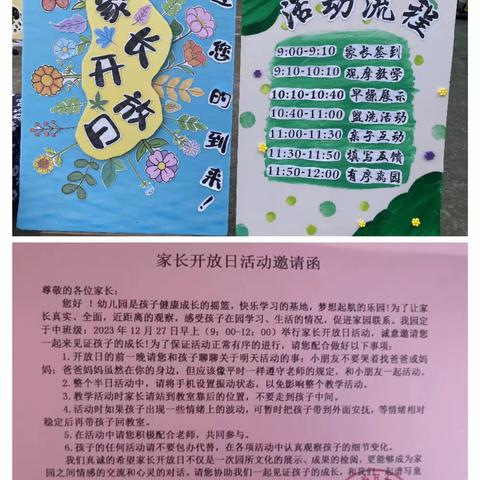 您的到来！
家长开放日
活动流程
9:00-9:10 家长签到
9:10-10:10 观摩教学
10:10-10:40 早操展示
10:40-11:00 盥洗活动
11:00-11:30 亲子互动
11:30-11:50 填写反馈
11:50-12:00 有序离园
家长开放日活动邀请函
尊敬的各位家长：
您好！幼儿园是孩子健康成长的摇篮，快乐学习的基地，梦想起航的乐园！为了让家
长真实、全面，近距离的观察，感受孩子在园学习、生活的情况，促进家园联系。我园定
于中班级：2023年12月27日早上（9：00-12：00）举行家长开放日活动，诚意邀请您
一起来见证孩子的成长！为了保证活动正常有序的进行，请您配合做好以下事项：
1.开放日的前一晚请您和孩子聊聊关于明天活动的事：小朋友不要哭着找爸爸或妈
妈；爸爸妈妈虽然在你的身边，但应该像平时一样遵守老师的规定，和小朋友一起活动。
2.整个半日活动中，请将手机设置振动状态，以免影响整个教学活动。
3.教学活动时家长请站到教室靠后的位置，不要走到孩子中间。
4.活动时如果孩子出现一些情绪上的波动，可暂时把孩子带到外面安抚，等情绪相对
稳定后再带孩子回教室。
5.在活动中请您积极配合老师，共同参与。
6.孩子的任何活动请不要包办代替，在各项活动中认真观察孩子的细节变化。
我们真诚的希望家长开放日不仅是一次园所文化的展示、成果的检阅，更能够成为家
园之间情感的交流和心灵的对话。请您协助我们一起见证孩子的成长，和我们一起谱写童